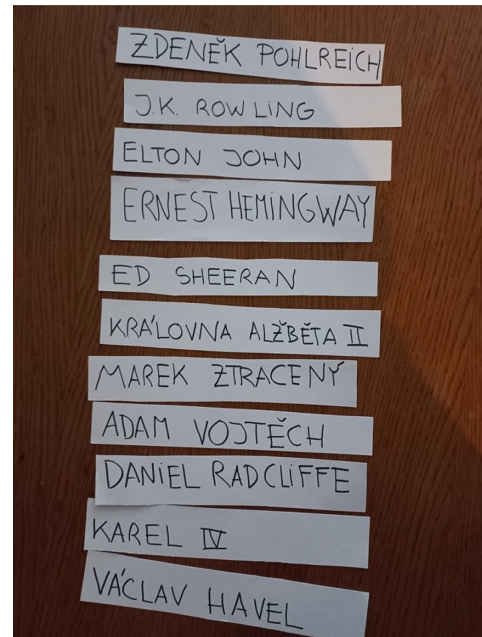 ZDENĚK POHLREICH
J.K. ROWLING
ELTON JOHN
ERNEST HEMINGWAY
ED SHEERAN
KRÁLOVNA ALŽBĚTA II
MAREK ZTRACENÝ
ADAM VOJTĚCH
DANIEL RADCLIFFE
KAREL IV
VÁCLAV HAVEL